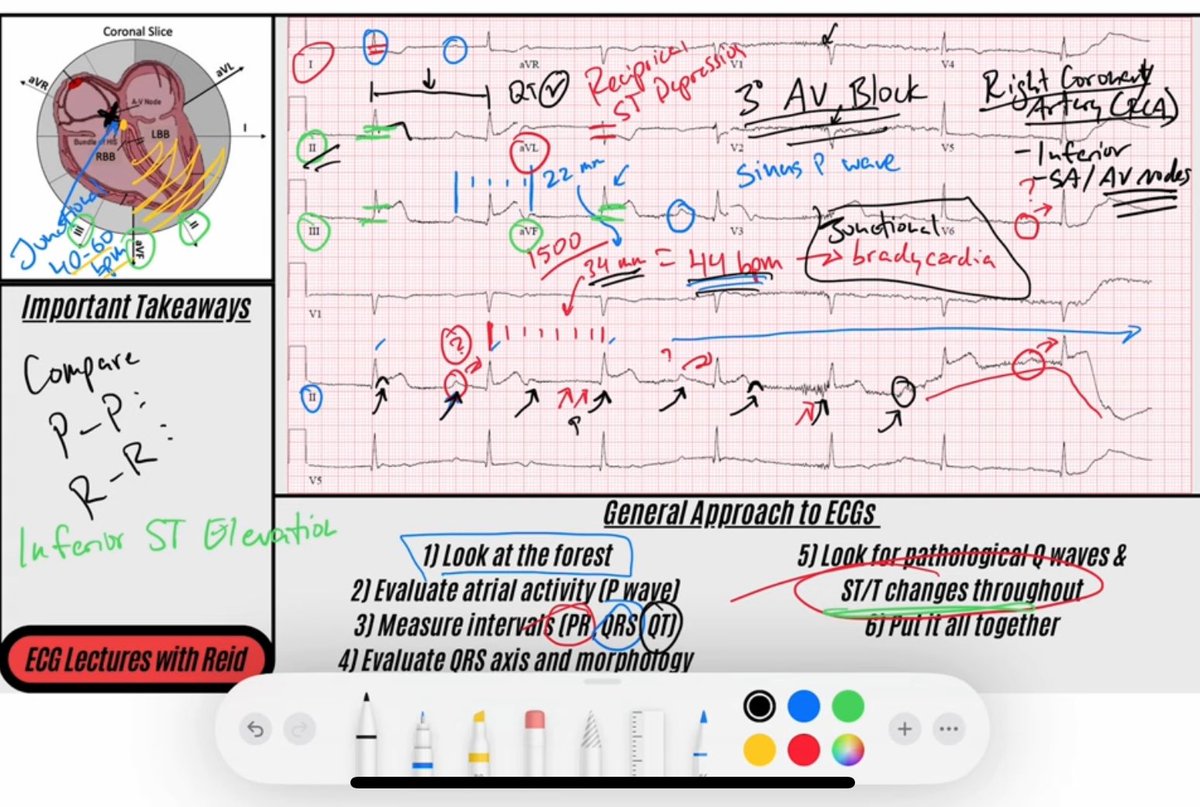 Coronal Slice
aVR
aVL
A-V Node
I
LBB
Bundle of HIS
RBB
Junctional
40-60
bpm
III
aVF
II
Important Takeaways
Compare
P-P:
R-R:
Inferior ST Elevation
ECG Lectures with Reid
I
aVR
V1
V4
QT
Reciprical
ST Depression
3° AV Block
Right Coronary
Artery (RCA)
- Inferior
- SA/AV nodes
II
aVL
V2
V5
Sinus P wave
22 mm
?
III
aVF
V3
V6
1500
34 mm = 44 bpm → bradycardia
Junctional
V1
?
?
II
P
V5
General Approach to ECGs
1) Look at the forest
2) Evaluate atrial activity (P wave)
3) Measure intervals (PR, QRS, QT)
4) Evaluate QRS axis and morphology
5) Look for pathological Q waves &
ST/T changes throughout
6) Put it all together